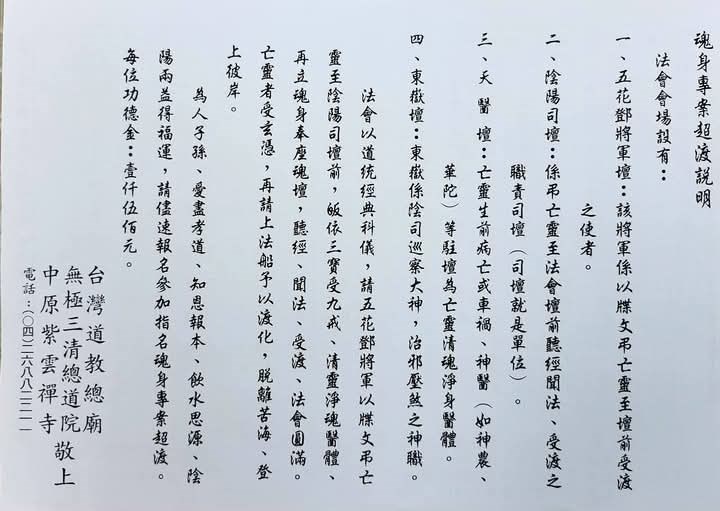 魂身專案超渡說明
法會會場設有：
一、五花鄧將軍壇：該將軍係以牒文弔亡靈至壇前受渡
之使者。
二、陰陽司壇：係弔亡靈至法會壇前聽經聞法、受渡之
職責司壇（司壇就是單位）。
三、天醫壇：亡靈生前病亡或車禍、神醫（如神農、
華陀）等駐壇為亡靈清魂淨身醫體。
四、東嶽壇：東嶽係陰司巡察大神，治邪壓煞之神職。
法會以道統經典科儀，請五花鄧將軍以牒文弔亡
靈至陰陽司壇前，皈依三寶受九戒、清靈淨魂醫體、
再立魂身奉座魂壇，聽經、聞法、受渡、法會圓滿。
亡靈者受玄憑，再請上法船予以渡化，脫離苦海、登
上彼岸。
為人子孫、愛盡孝道、知恩報本、飲水思源、陰
陽兩益得福運，請儘速報名參加指名魂身專案超渡。
每位功德金：壹仟伍佰元。
台灣道教總廟
無極三清總道院 敬上
中原紫雲禪寺
電話：（○四）二六八八二二一一